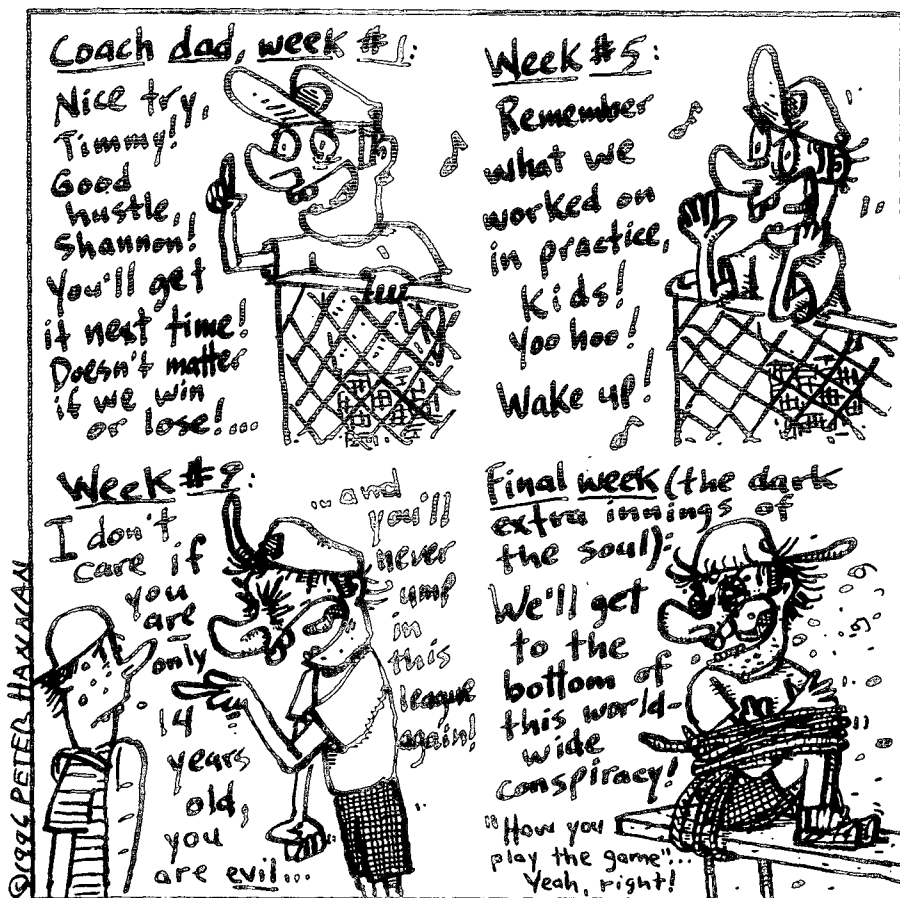 Coach dad, week #1:
Nice try,
Timmy!
Good
hustle,
Shannon!
You'll get
it next time!
Doesn't matter
if we win
or lose!...
Week #5:
Remember
what we
worked on
in practice,
kids!
Yoo hoo!
Wake up!
Week #9:
I don't
care if
you
are
only
14
years
old,
you
are evil...
...and
you'll
never
ump
in
this
league
again!
Final week (the dark
extra innings of
the soul):
We'll get
to the
bottom of
this world-
wide
conspiracy!
"How you
play the game"...
Yeah, right!
©1996 PETER HANNAN